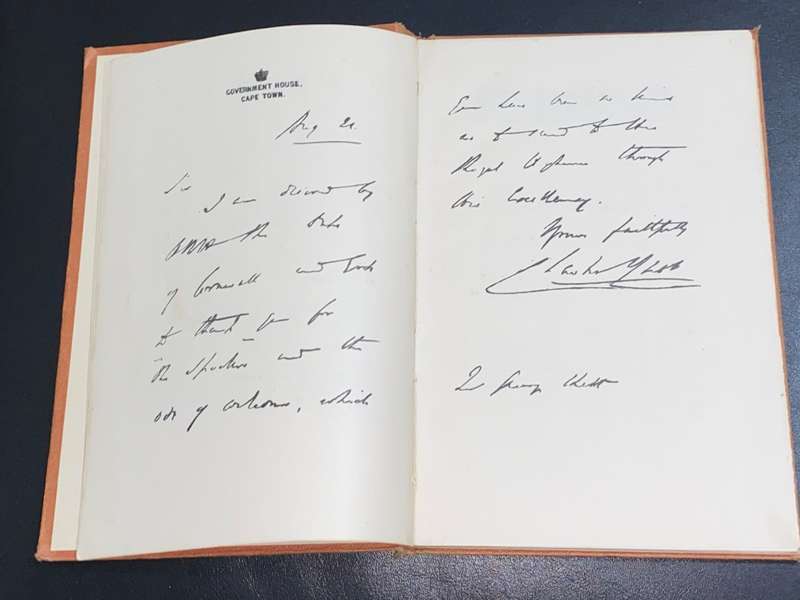 GOVERNMENT HOUSE,
CAPE TOWN.
Aug 21.
Sir
I am desired by
HRH the Duke
of Cornwall and York
to thank you for
the and the
ode of welcome, which
you have been so kind
as to send to His
Royal Highness through
His Excellency.
Yours faithfully